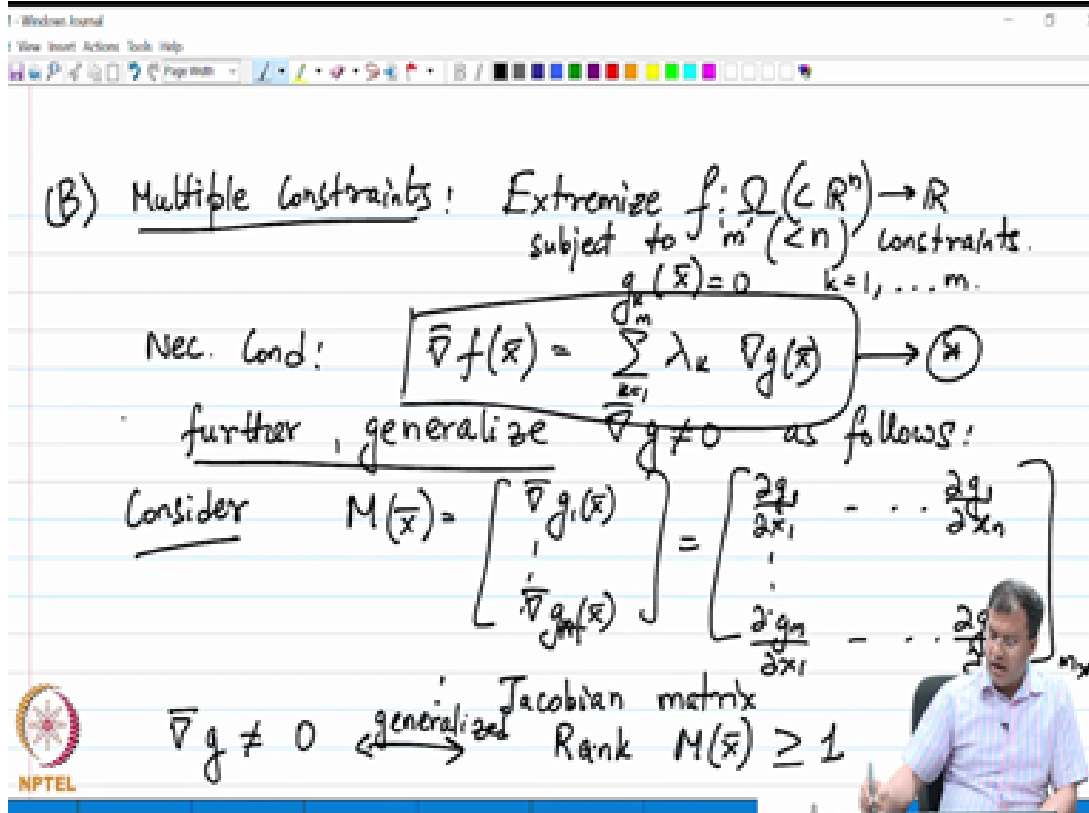 - Windows Journal
View Insert Actions Tools Help
Page Width
B /
(B) Multiple Constraints: Extremize f: Ω (⊂ ℝⁿ) → ℝ
subject to 'm' (<n) constraints.
gₖ(x̄) = 0 k=1, ... m.
Nec. Cond: ∇̄f(x̄) = ∑ₖ₌₁ᵐ λₖ ∇g(x̄) → (*)
further, generalize ∇̄g ≠ 0 as follows:
Consider M(x̄) = [ ∇̄g₁(x̄) ⋮ ∇̄gₘ(x̄) ] = [ ∂g₁/∂x₁ - ... ∂g₁/∂xₙ ⋮ ∂gₘ/∂x₁ - ...
: Jacobian matrix
∇̄g ≠ 0 ⟷ generalized Rank M(x̄) ≥ 1
NPTEL